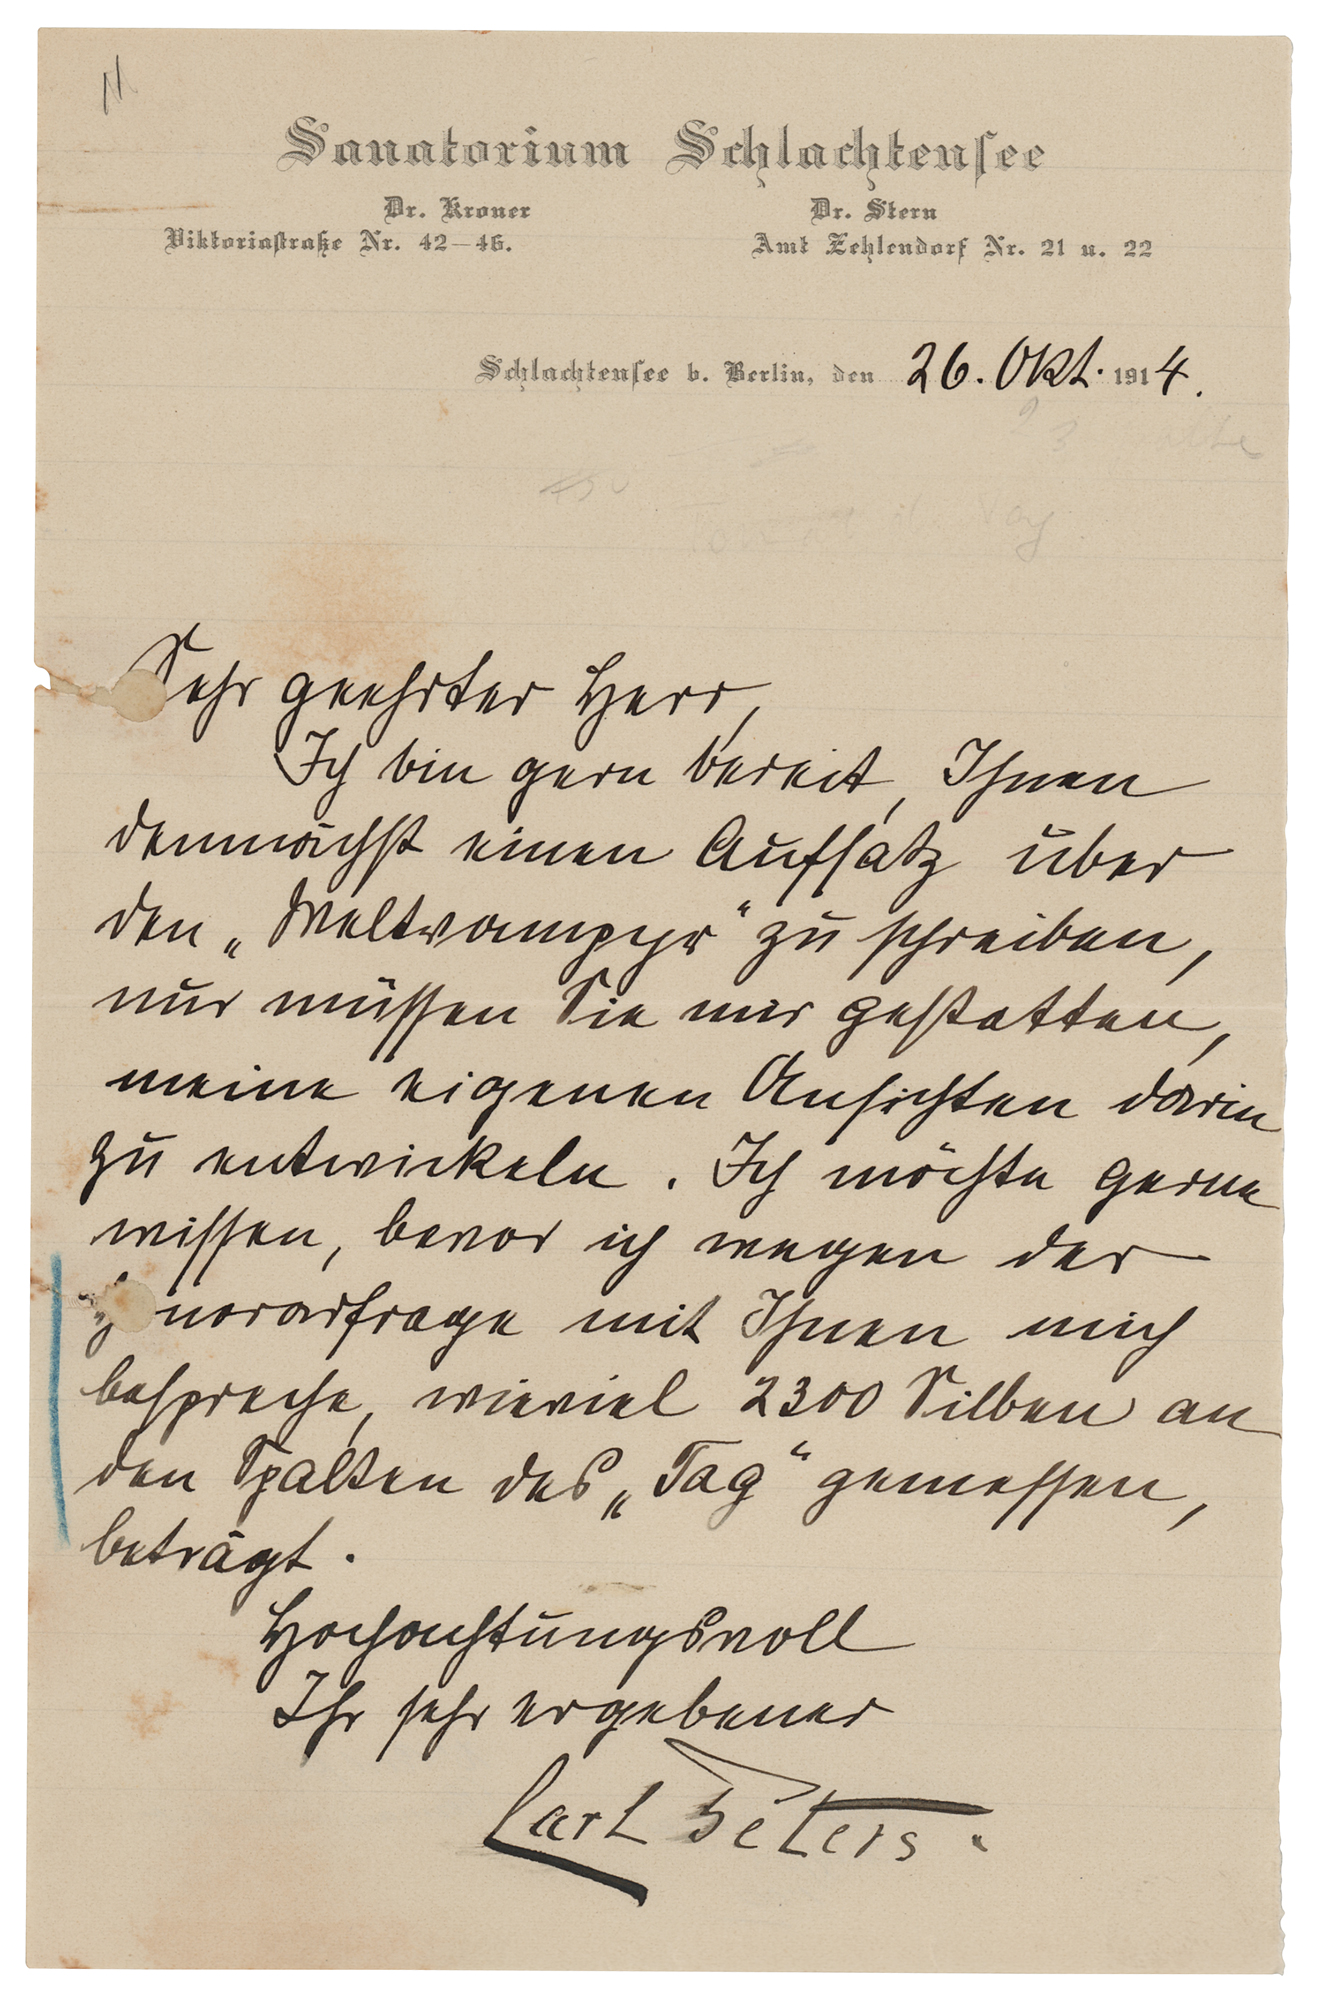 Sanatorium Schlachtensee
Dr. Kroner Dr. Stern
Viktoriastraße Nr. 42–46. Amt Zehlendorf Nr. 21 u. 22
Schlachtensee b. Berlin, den 26. Okt. 1914.
Sehr geehrter Herr,
Ich bin gern bereit, Ihnen
demnächst einen Aufsatz über
den „Weltvampyr“ zu schreiben,
nur müssen Sie mir gestatten,
meine eigenen Ansichten darin
zu entwickeln. Ich möchte gerne
wissen, bevor ich wegen der
Honorarfrage mit Ihnen mich
bespreche, wieviel 2300 Silben an
den Spalten des „Tag“ gemessen,
beträgt.
Hochachtungsvoll
Ihr sehr ergebener
Carl Peters.